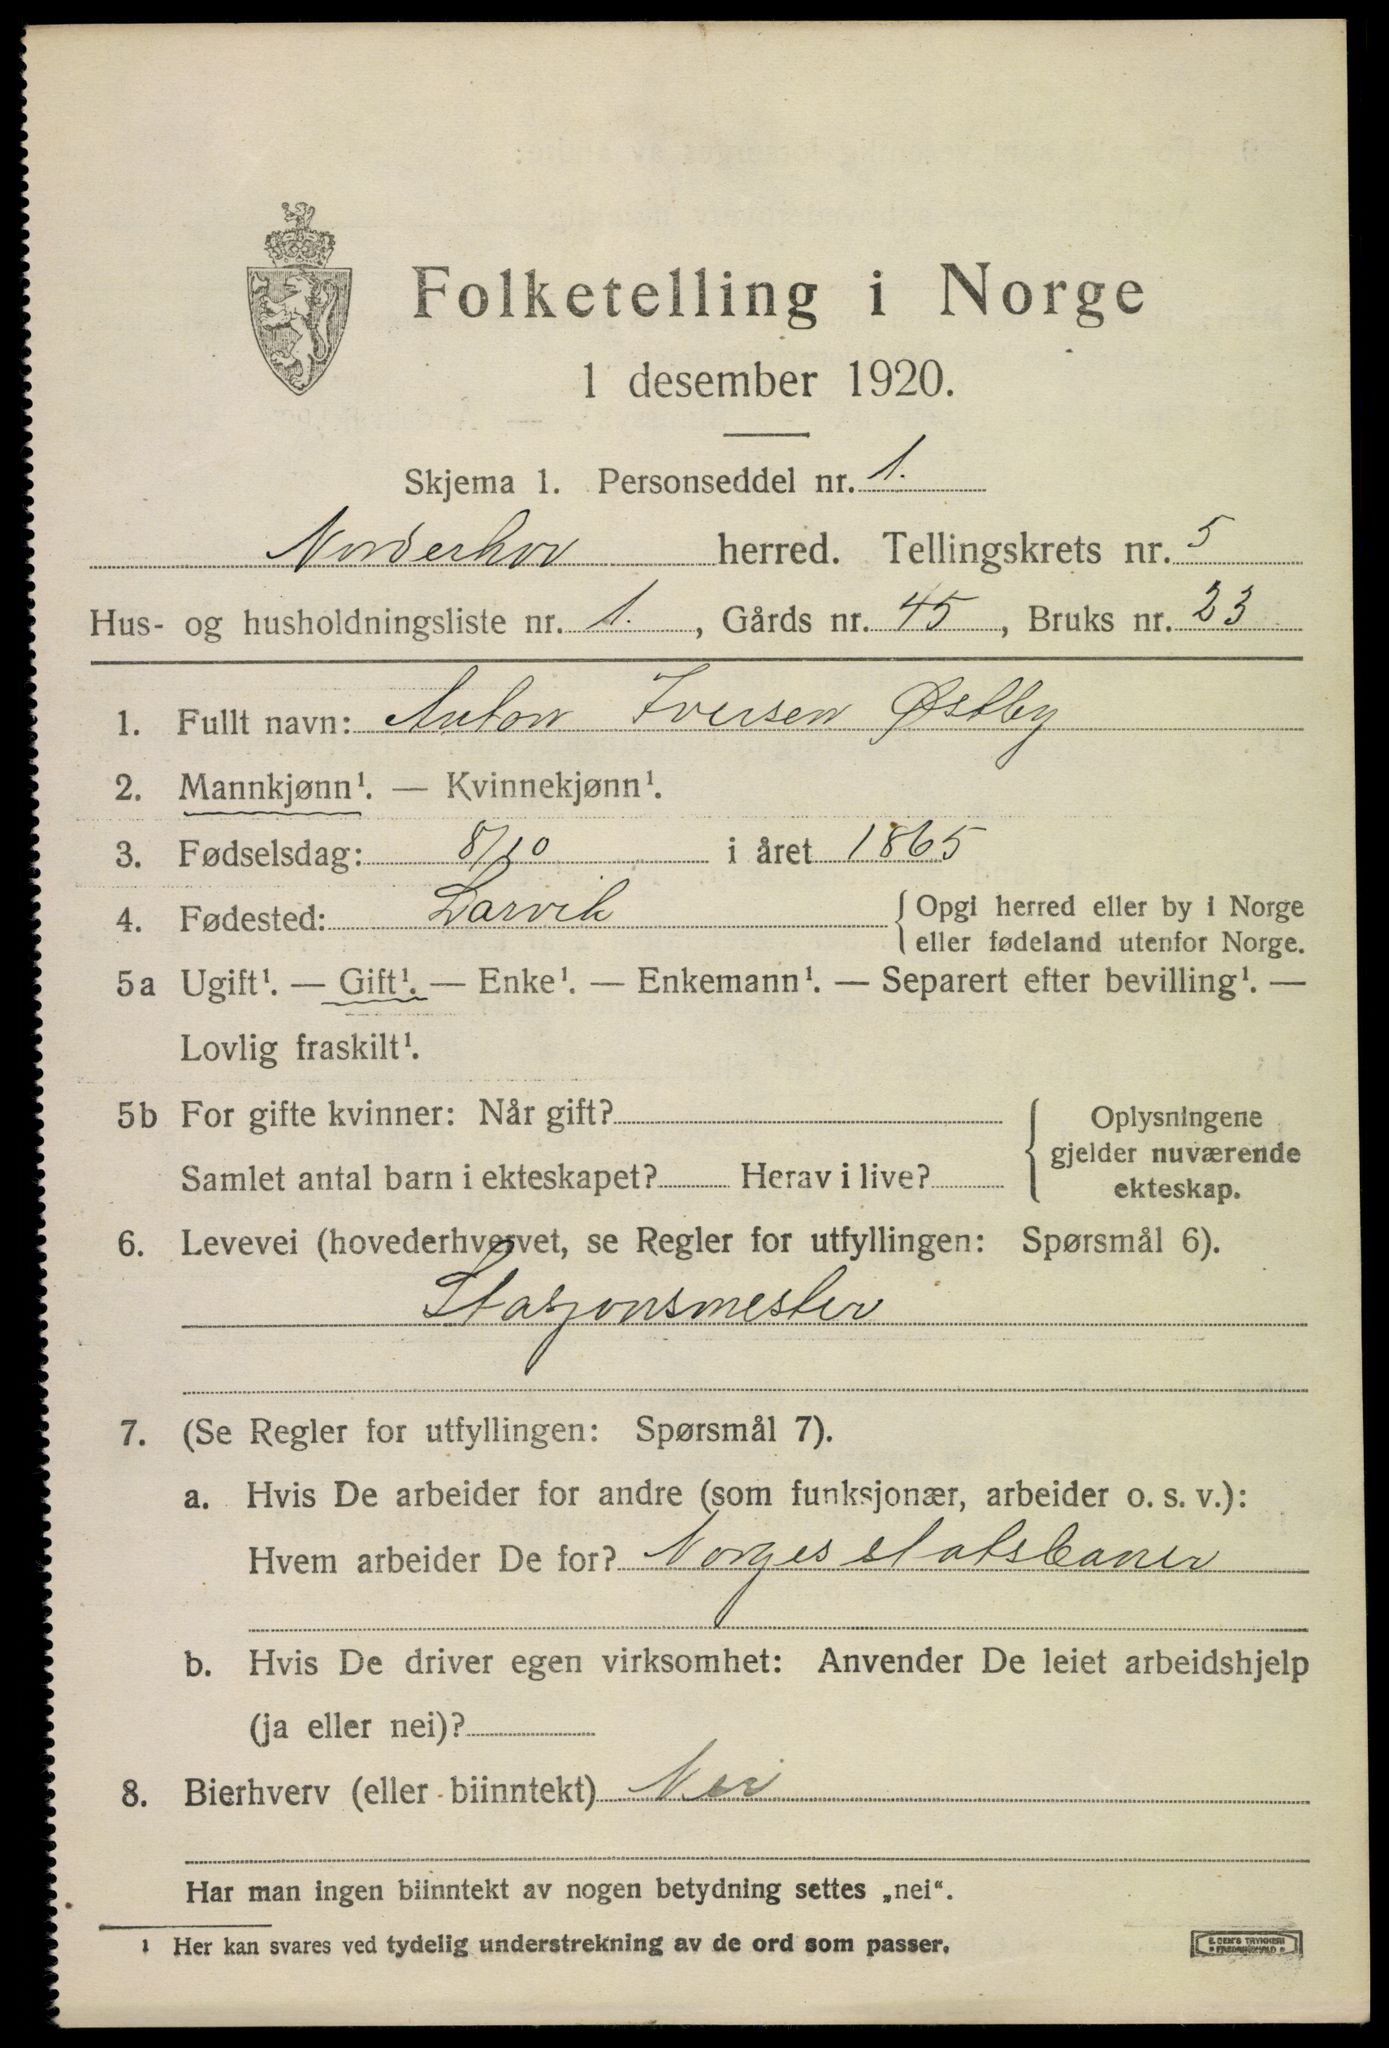 Folketelling i Norge
1 desember 1920.
Skjema 1. Personseddel nr. 1.
Norderhov herred. Tellingskrets nr. 5
Hus- og husholdningsliste nr. 1., Gårds nr. 45, Bruks nr. 23
1. Fullt navn: Anton Iversen Østby
2. Mannkjønn¹. — Kvinnekjønn¹.
3. Fødselsdag: 8/10 i året 1865
4. Fødested: Larvik { Opgi herred eller by i Norge
eller fødeland utenfor Norge.
5a Ugift¹. — Gift¹. — Enke¹. — Enkemann¹. — Separert efter bevilling¹. —
Lovlig fraskilt¹.
5b For gifte kvinner: Når gift?
Samlet antal barn i ekteskapet? Herav i live?
{ Oplysningene
gjelder nuværende
ekteskap.
6. Levevei (hovederhvervet, se Regler for utfyllingen: Spørsmål 6).
Stasjonsmester
7. (Se Regler for utfyllingen: Spørsmål 7).
a. Hvis De arbeider for andre (som funksjonær, arbeider o. s. v.):
Hvem arbeider De for? Norges statsbaner
b. Hvis De driver egen virksomhet: Anvender De leiet arbeidshjelp
(ja eller nei)?
8. Bierhverv (eller biinntekt) Nei
Har man ingen biinntekt av nogen betydning settes „nei“.
¹ Her kan svares ved tydelig understrekning av de ord som passer.